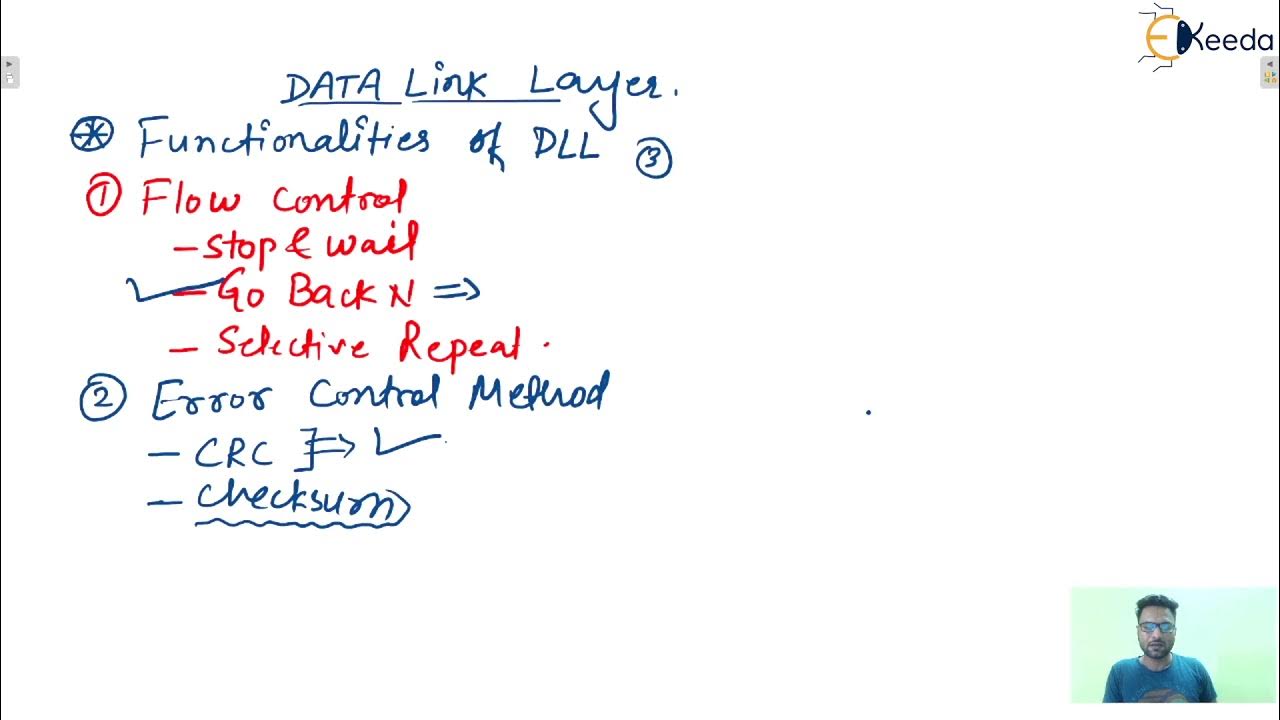 EKeeda
DATA Link Layer.
Functionalities of DLL ③
① Flow Control
- Stop & wait
- Go Back N ⇒
- Selective Repeat .
② Error Control Method
- CRC ] ⇒ ✓
- Checksum